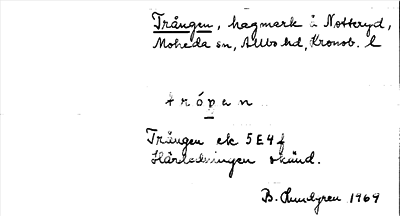 Trången, hagmark å Notteryd,
Moheda sn, Allbo hd, Kronob. l
trópen
Trången ek 5E4f
Härledningen okänd.
B. Lundgren 1969